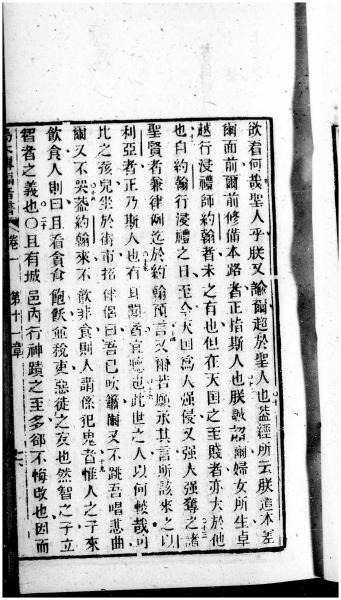 欲看何哉聖人乎朕又諭爾超於聖人也蓋經所云朕遣本差
爾面前爾前修備本路者正指斯人也朕誠謟爾婦女所生卓
越行浸禮師約翰者未之有也但在天国之至賤者亦大於他
也自約翰行浸禮之日至今天国為人强侵又强人强奪之諸
聖賢者兼律例迄於約翰預言又爾若願承其言所該來之以
利亞者正乃斯人也有耳聽者宜聽也此世之人以何較哉可
比之孩兒坐於街市招伴侶曰吾已吹籥爾又不跳吾唱悲曲
爾又不哭蓋約翰來不飲非食則人謂係犯鬼者惟人之子來
飲食人則曰且看貪食飽飲並稅吏惡徒之友也然智之子立
智者之義也〇且有城邑内行神蹟之至多卻不悔改也因而
馬太傳福音書 卷一 第十一章